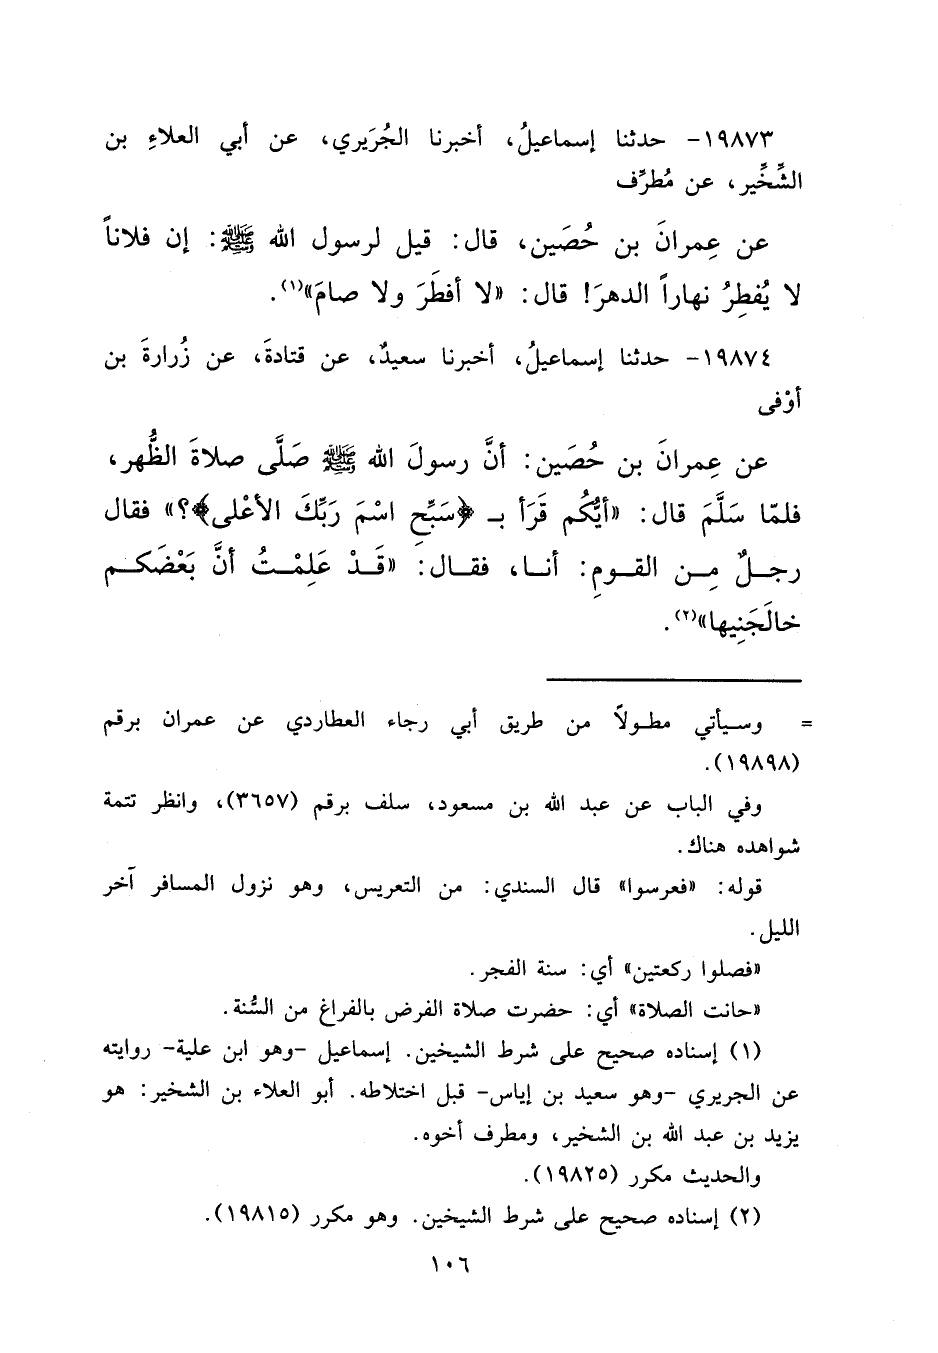 ١٩٨٧٣- حدثنا إسماعيلُ، أخبرنا الجُرَيري، عن أبي العلاءِ بن
الشِّخِّير، عن مُطرِّف
عن عِمرانَ بن حُصَين، قال: قيل لرسول الله ﷺ: إن فلاناً
لا يُفطِرُ نهاراً الدهرَ! قال: «لا أفطَرَ ولا صامَ»(١).
١٩٨٧٤- حدثنا إسماعيلُ، أخبرنا سعيدٌ، عن قتادةَ، عن زُرارةَ بن
أوْفى
عن عِمرانَ بن حُصَين: أنَّ رسولَ الله ﷺ صَلَّى صلاةَ الظُّهر،
فلمّا سَلَّمَ قال: «أيُّكُم قَرَأ بـ ﴿سَبِّحِ اسْمَ رَبِّكَ الأعْلى﴾؟» فقال
رجـلٌ مِـن القـومِ: أنـا، فقـال: «قَـدْ عَلِمْـتُ أنَّ بَعْضَكـم
خالَجَنِيها»(٢).
= وسـيأتي مطـولاً من طريق أبي رجاء العطاردي عن عمران برقم
(١٩٨٩٨).
وفي الباب عن عبد الله بن مسعود، سلف برقم (٣٦٥٧)، وانظر تتمة
شواهده هناك.
قوله: «فعرسوا» قال السندي: من التعريس، وهو نزول المسافر آخر
الليل.
«فصلوا ركعتين» أي: سنة الفجر.
«حانت الصلاة» أي: حضرت صلاة الفرض بالفراغ من السُّنة.
(١) إسناده صحيح على شرط الشيخين. إسماعيل -وهو ابن علية- روايته
عن الجريري -وهو سعيد بن إياس- قبل اختلاطه. أبو العلاء بن الشخير: هو
يزيد بن عبد الله بن الشخير، ومطرف أخوه.
والحديث مكرر (١٩٨٢٥).
(٢) إسناده صحيح على شرط الشيخين. وهو مكرر (١٩٨١٥).
١٠٦